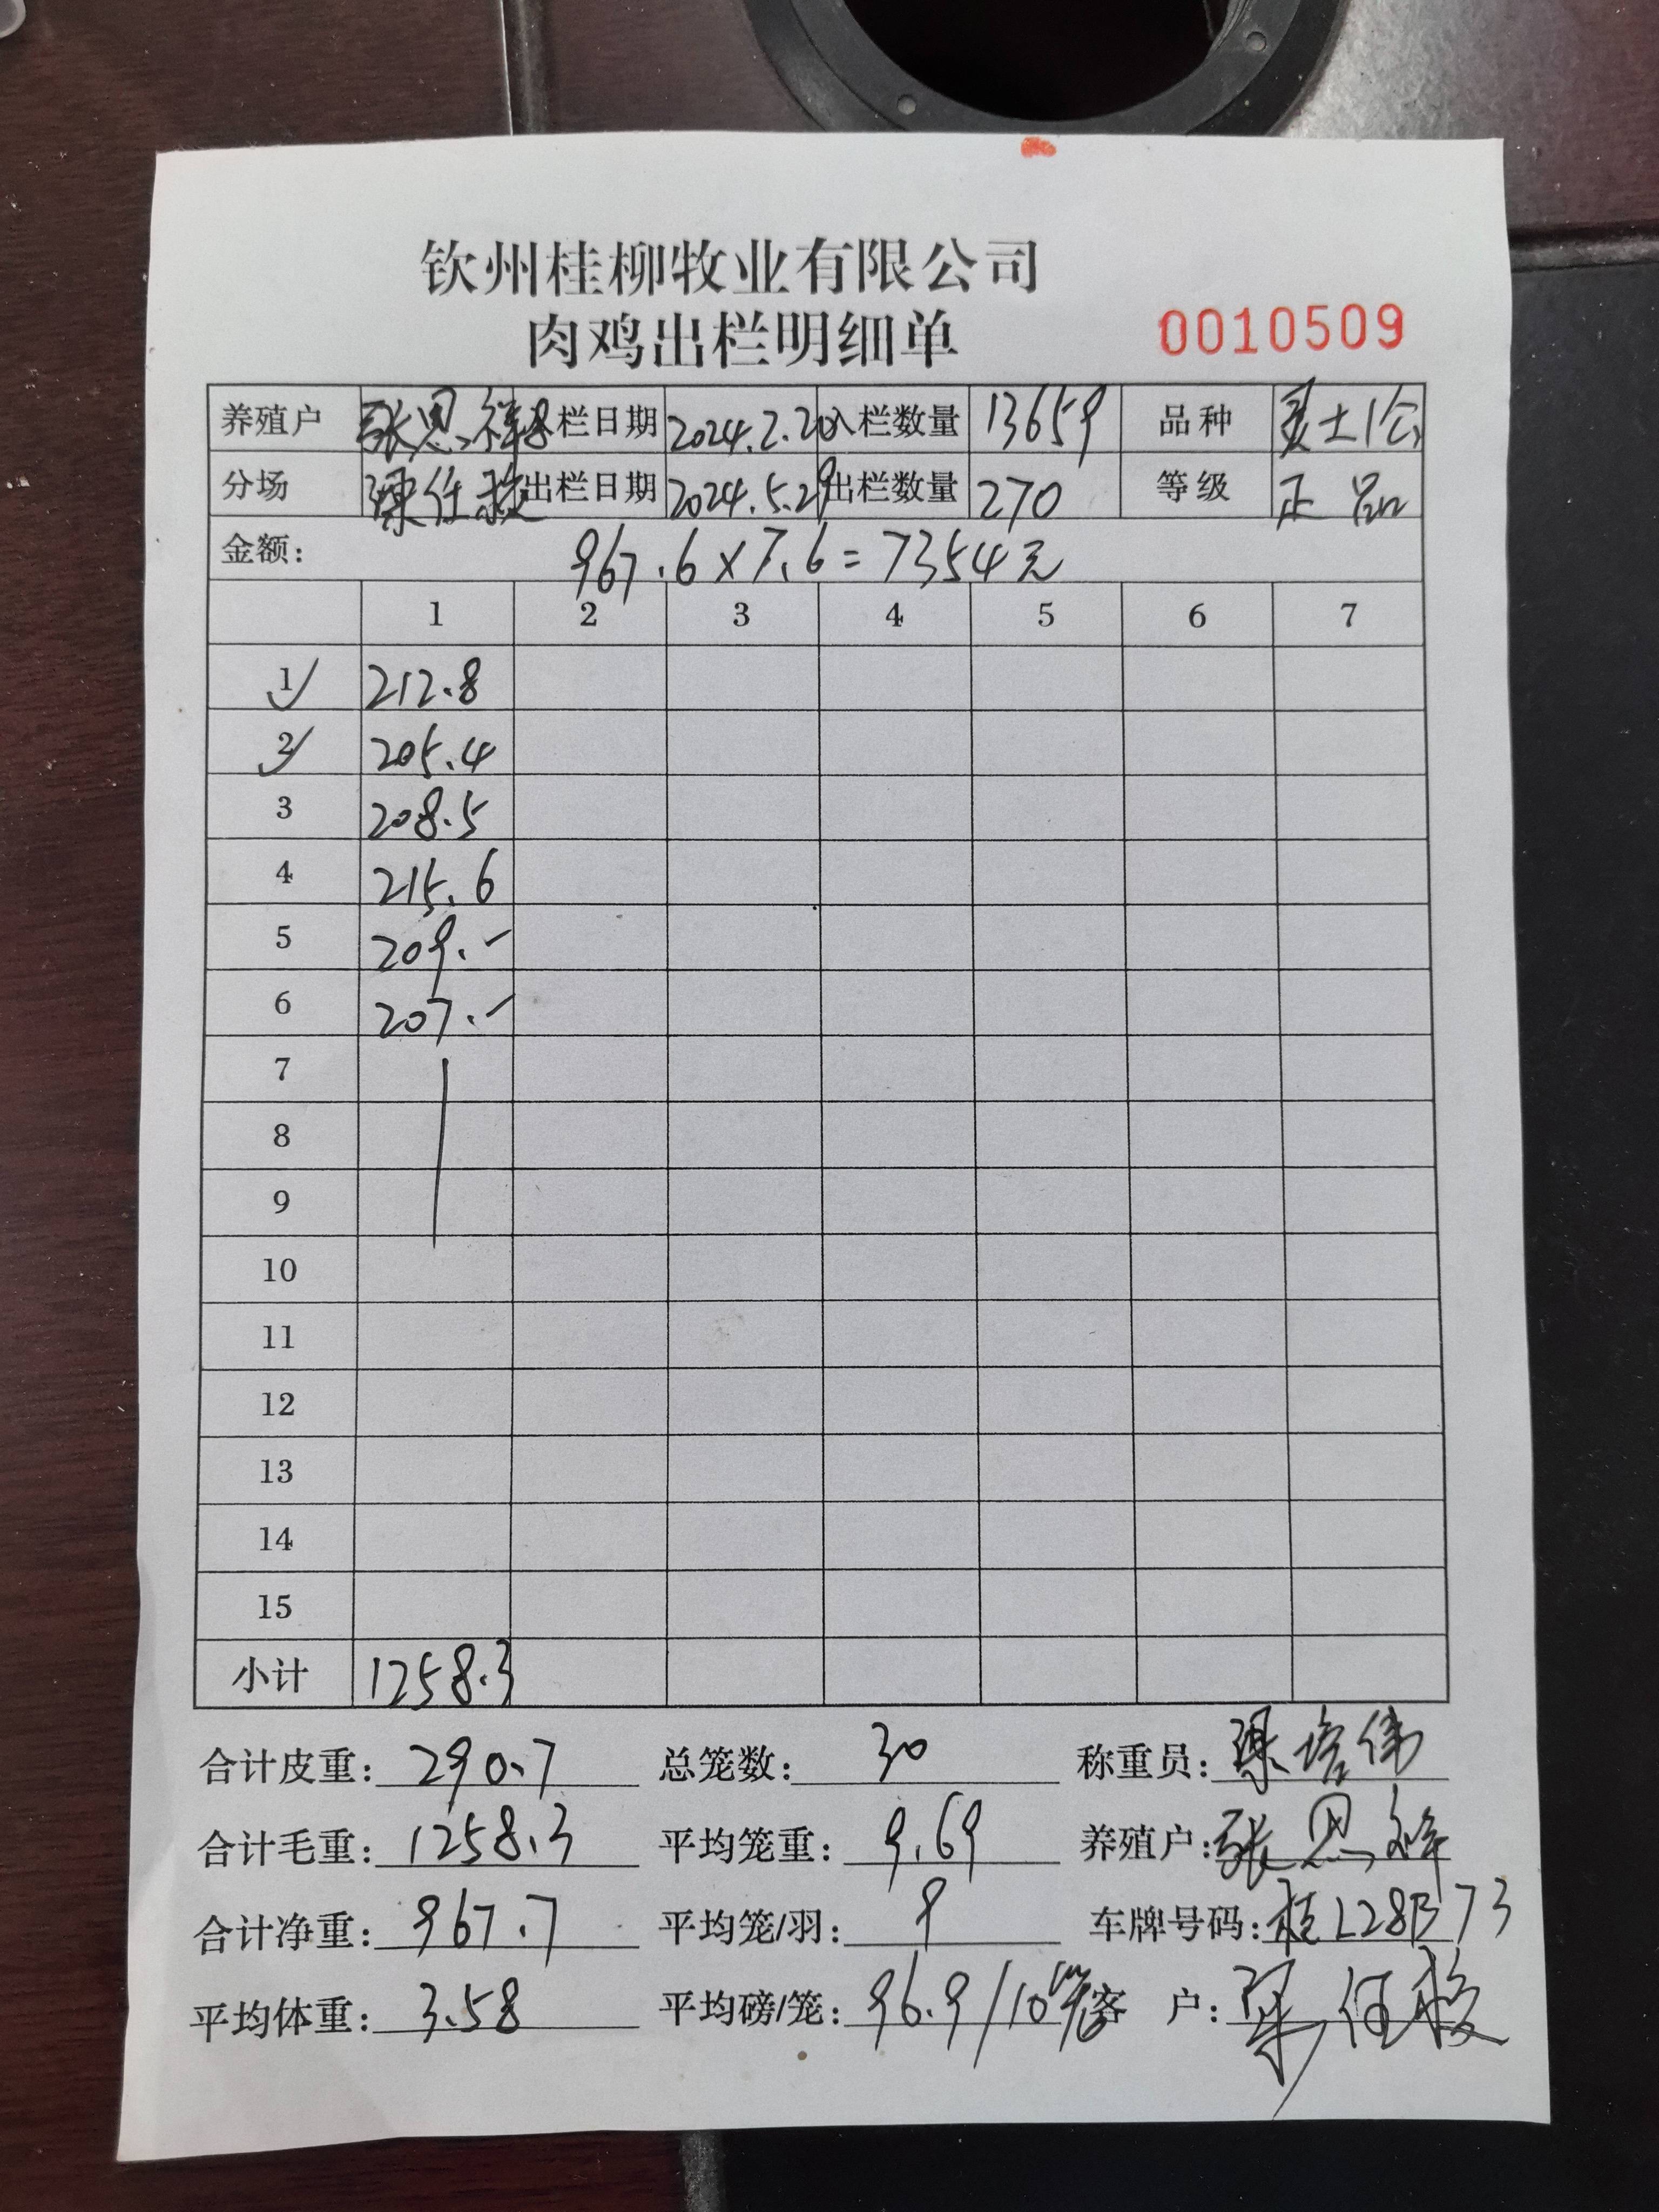 钦州桂柳牧业有限公司
肉鸡出栏明细单 0010509
养殖户 张思祥 入栏日期 2024.2.20 入栏数量 13659 品种
分场 出栏日期 2024.5.29 出栏数量 270 等级 正品
金额: 967.6×7.6=7354元
1 2 3 4 5 6 7
1 212.8
2 205.4
3 208.5
4 215.6
5 209.-
6 207.-
7
8
9
10
11
12
13
14
15
小计 1258.3
合计皮重: 290.7 总笼数: 30 称重员: 梁培伟
合计毛重: 1258.3 平均笼重: 9.69 养殖户: 张思祥
合计净重: 967.7 平均笼/羽: 9 车牌号码: 桂L28B73
平均体重: 3.58 平均磅/笼: 96.9/10笼 客户: